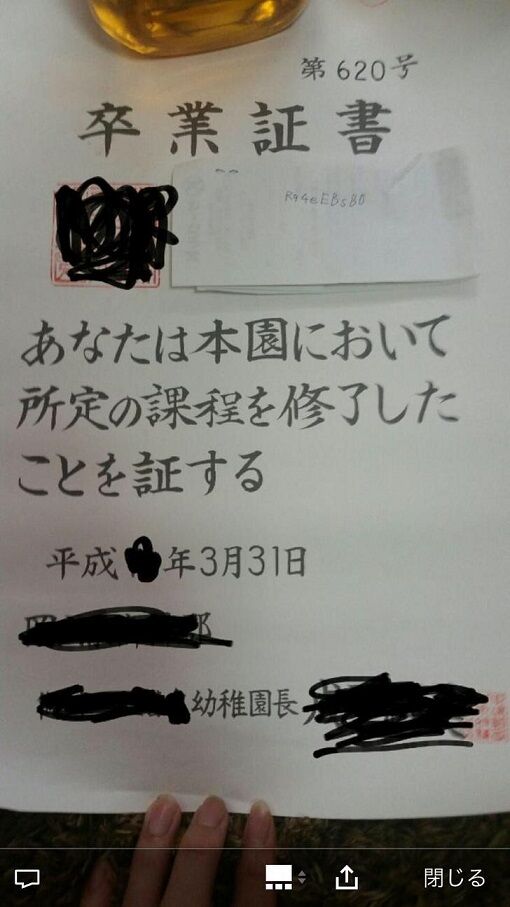 第620号
卒業証書
R94eEBsB0
あなたは本園において
所定の課程を修了した
ことを証する
平成 年3月31日
幼稚園長
閉じる